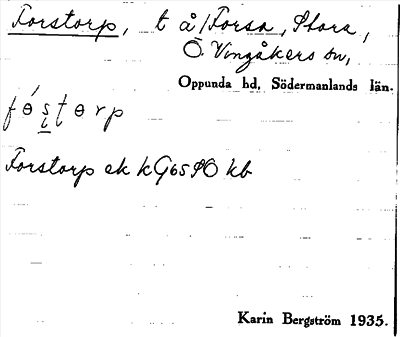 Forstorp, t å/Forsa, Stora,
Ö. Vingåkers sn,
Oppunda hd, Södermanlands län.
fɵ́ştɵrp
Forstorp ek kG65SO kb
Karin Bergström 1935.